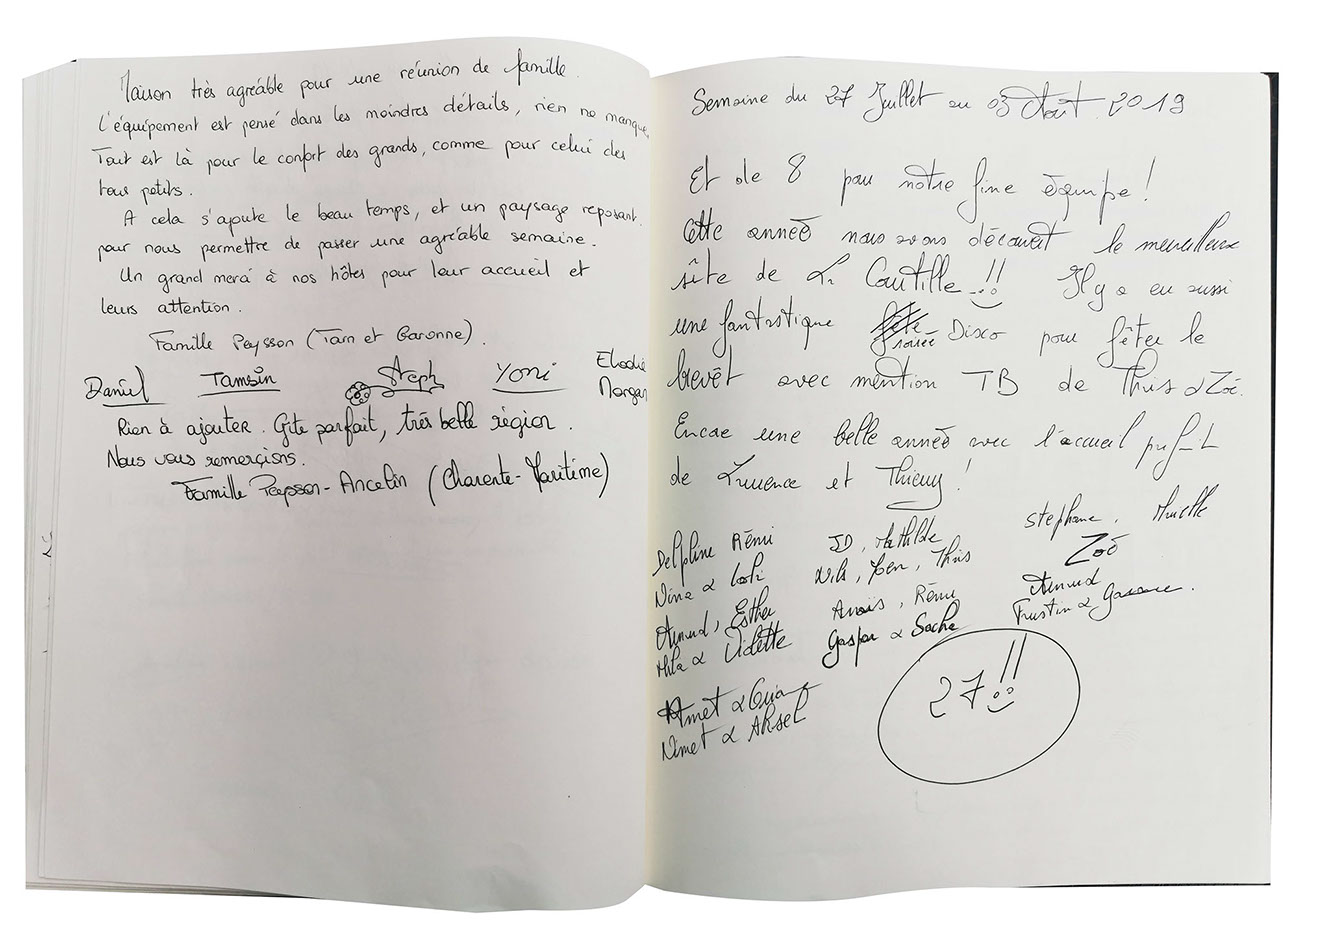 Maison très agréable pour une réunion de famille.
L'équipement est pensé dans les moindres détails, rien ne manque,
Tout est là pour le confort des grands, comme pour celui des
tous petits.
A cela s'ajoute le beau temps, et un paysage reposant
pour nous permettre de passer une agréable semaine.
Un grand merci à nos hôtes pour leur accueil et
leurs attention.
Famille Peysson (Tarn et Garonne).
Daniel Tamsin Steph Yoni Elodie
Morgan
Rien à ajouter. Gîte parfait, très belle région.
Nous vous remercions.
Famille Peysson-Ancelin (Charente-Maritime)
Semaine du 27 Juillet au 03 Août 2019
Et de 8 pour notre fine équipe!
Cette année nous avons découvert le merveilleux
site de La Coutille!! Il y a eu aussi
une fantastique soirée Disco pour fêter le
brevet avec mention TB de This & Zoé.
Encore une belle année avec l'accueil parfait
de Laurence et Thierry!
Delphine Rémi JD, Mathilde Stephane, Murielle
Nina & Nils, This Zoé
Arnaud, Esther Anaïs, Rémi Arnaud
Mila & Violette Gaspar & Sacha &
Amet &
Nimet & Aksel
27!!